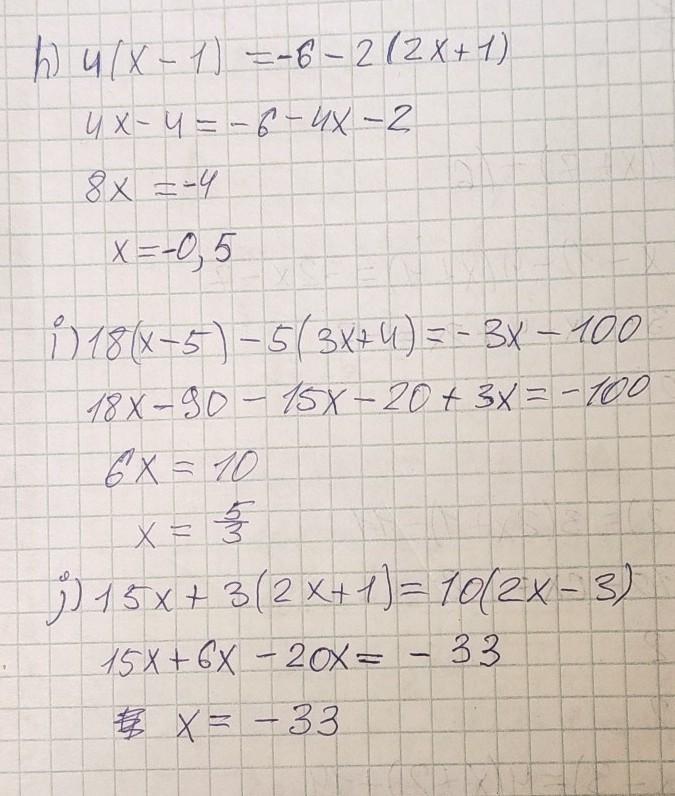 h) 4(x-1) =-6-2(2x+1)
4x-4=-6-4x-2
8x =-4
x=-0,5
i) 18(x-5)-5(3x+4)=-3x-100
18x-90-15x-20+3x=-100
6x=10
x=5/3
j) 15x+3(2x+1)=10(2x-3)
15x+6x-20x=-33
x=-33